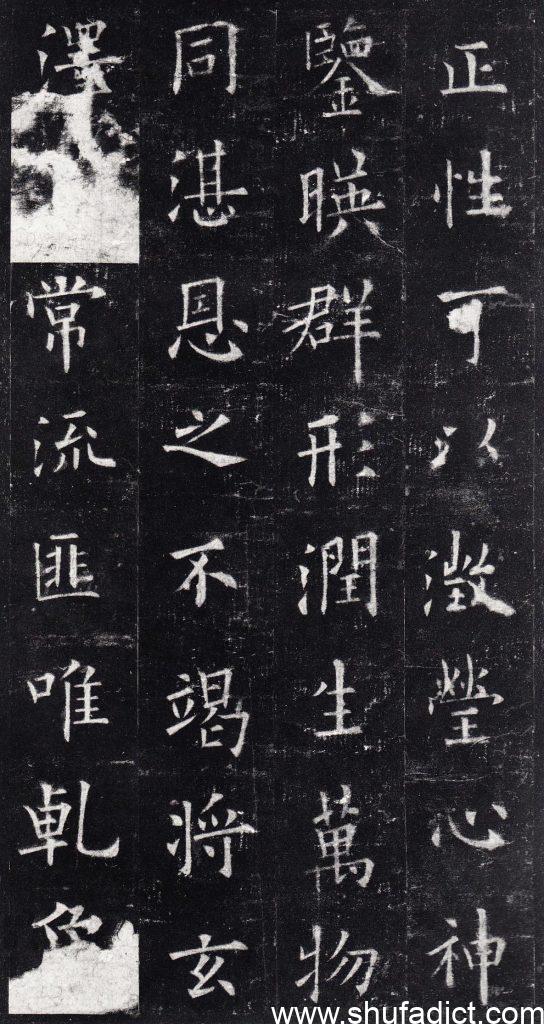 正性可以澂瑩心神
鑒暎群形潤生萬物
同湛恩之不竭将玄
澤常流匪唯乹
www.shufadict.com